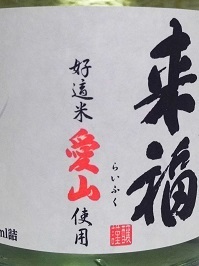 来福
らいふく
好適米
愛山
使用
ml詰